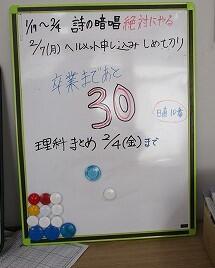 1/19〜2/4 詩の暗唱 絶対にやる
2/7(月)ヘルメット申し込み しめ切り
卒業まであと
30
日直 10番
理科 まとめ 2/4(金)まで